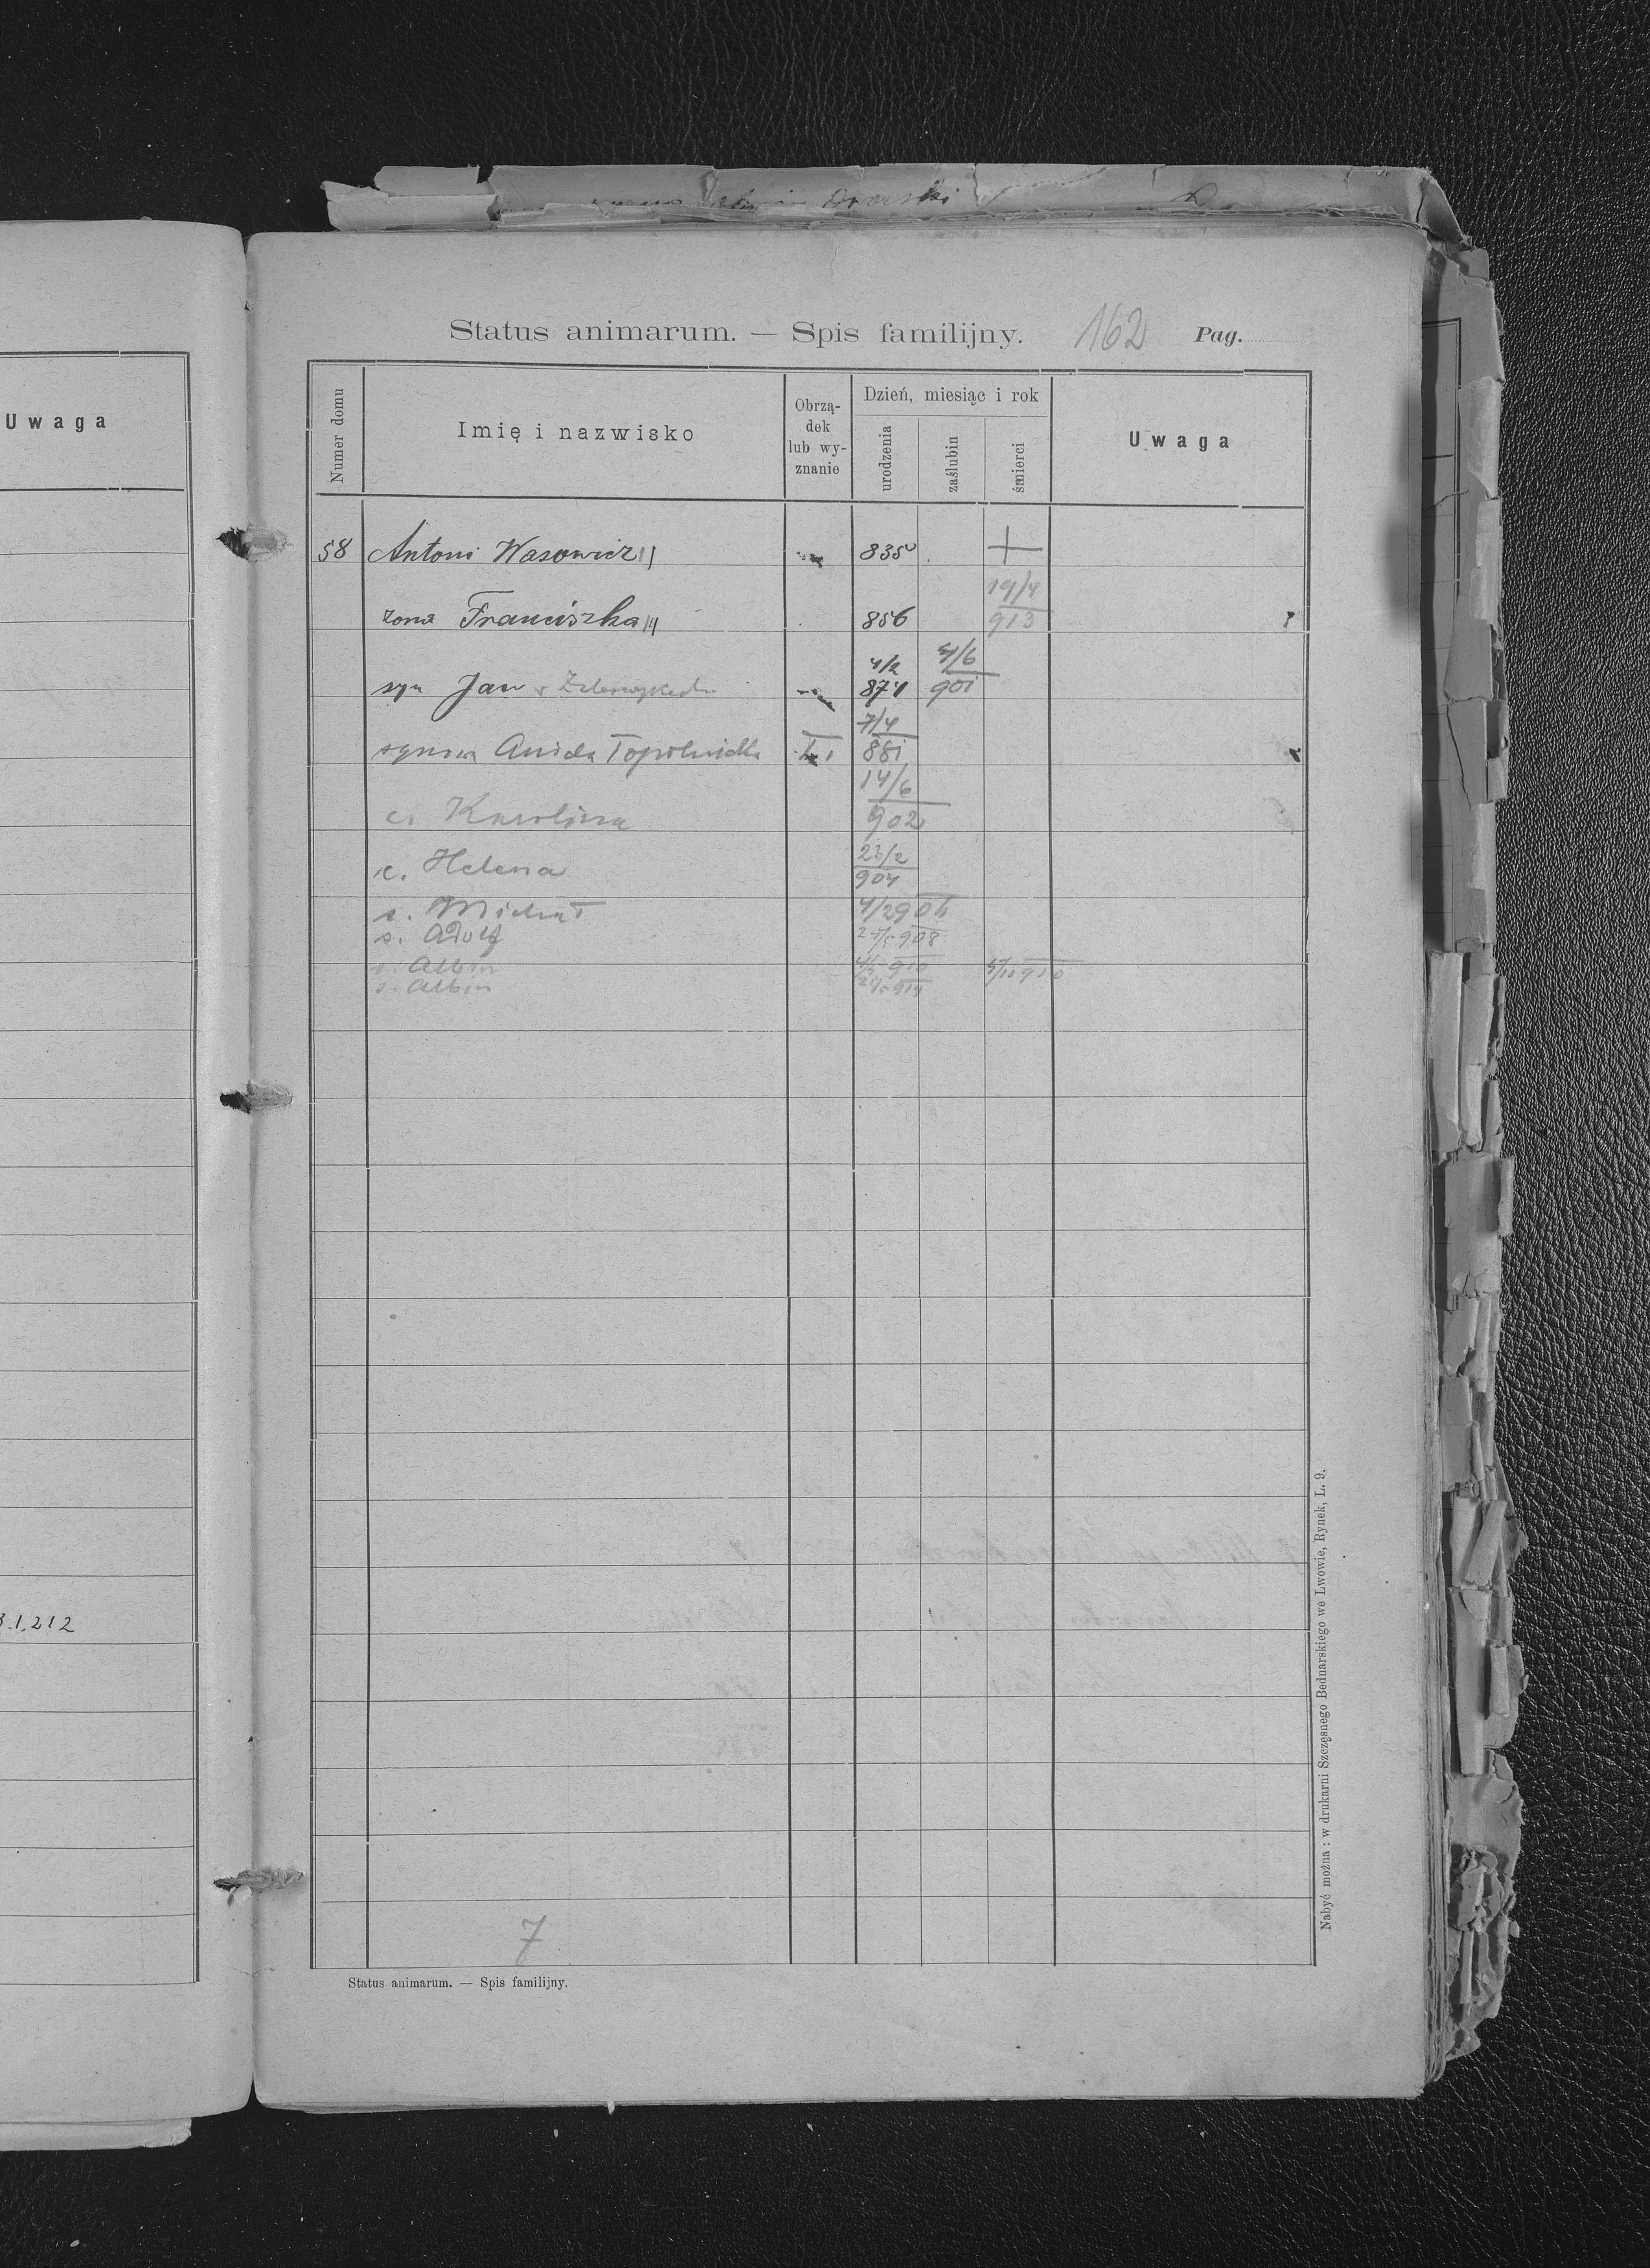 Uwaga
3.1.212
Status animarum. — Spis familijny. 162 Pag.
Numer domu
Imię i nazwisko
Obrzą-
dek
lub wy-
znanie
Dzień, miesiąc i rok
urodzenia
zaślubin
śmierci
Uwaga
58 Antoni Wasowicz 835 +
żona Franciszka 856 19/4 913
syn Jan 4/2 874 4/6 901
synowa 7/4 881
c. Karolina 14/6 902
c. Helena 23/2 904
s. Michał 4/2 906
s. Adolf 908
s. Albin 910 910
s. Albin 914
7
Status animarum. — Spis familijny.
Nabyć można : w drukarni Szczęsnego Bednarskiego we Lwowie, Rynek, L. 9.